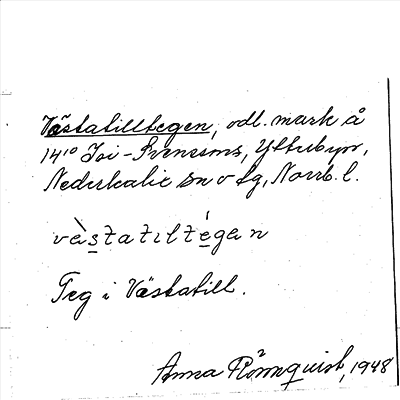 Västatilltegen, odl. mark å
14¹⁰ Joi-Svensons, Ytterbyn,
Nederkalix sn o fg, Norrb. l.
vàstatıltégan
Teg i Västatill.
Anna Rönnquist, 1948